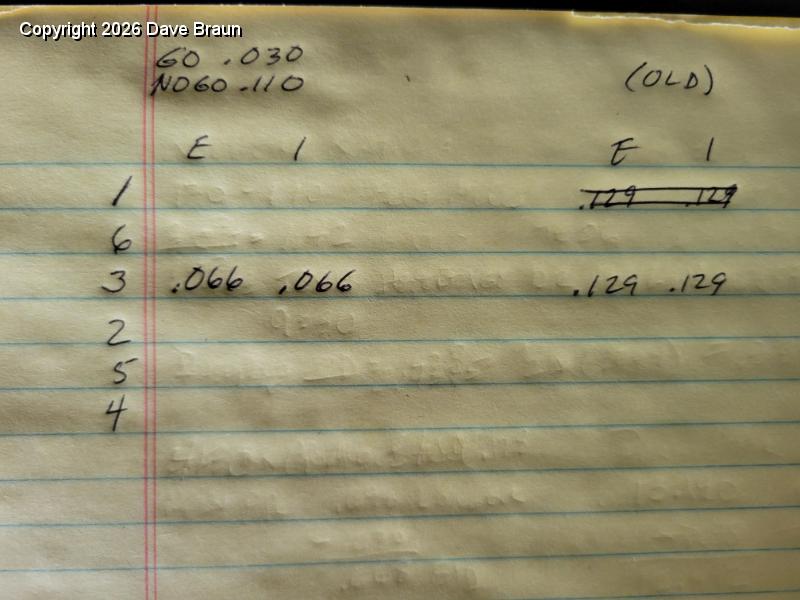 Copyright 2026 Dave Braun
GO .030
NOGO .110
(OLD)
E 1 E 1
1 .129 .129
6
3 .066 .066 .129 .129
2
5
4